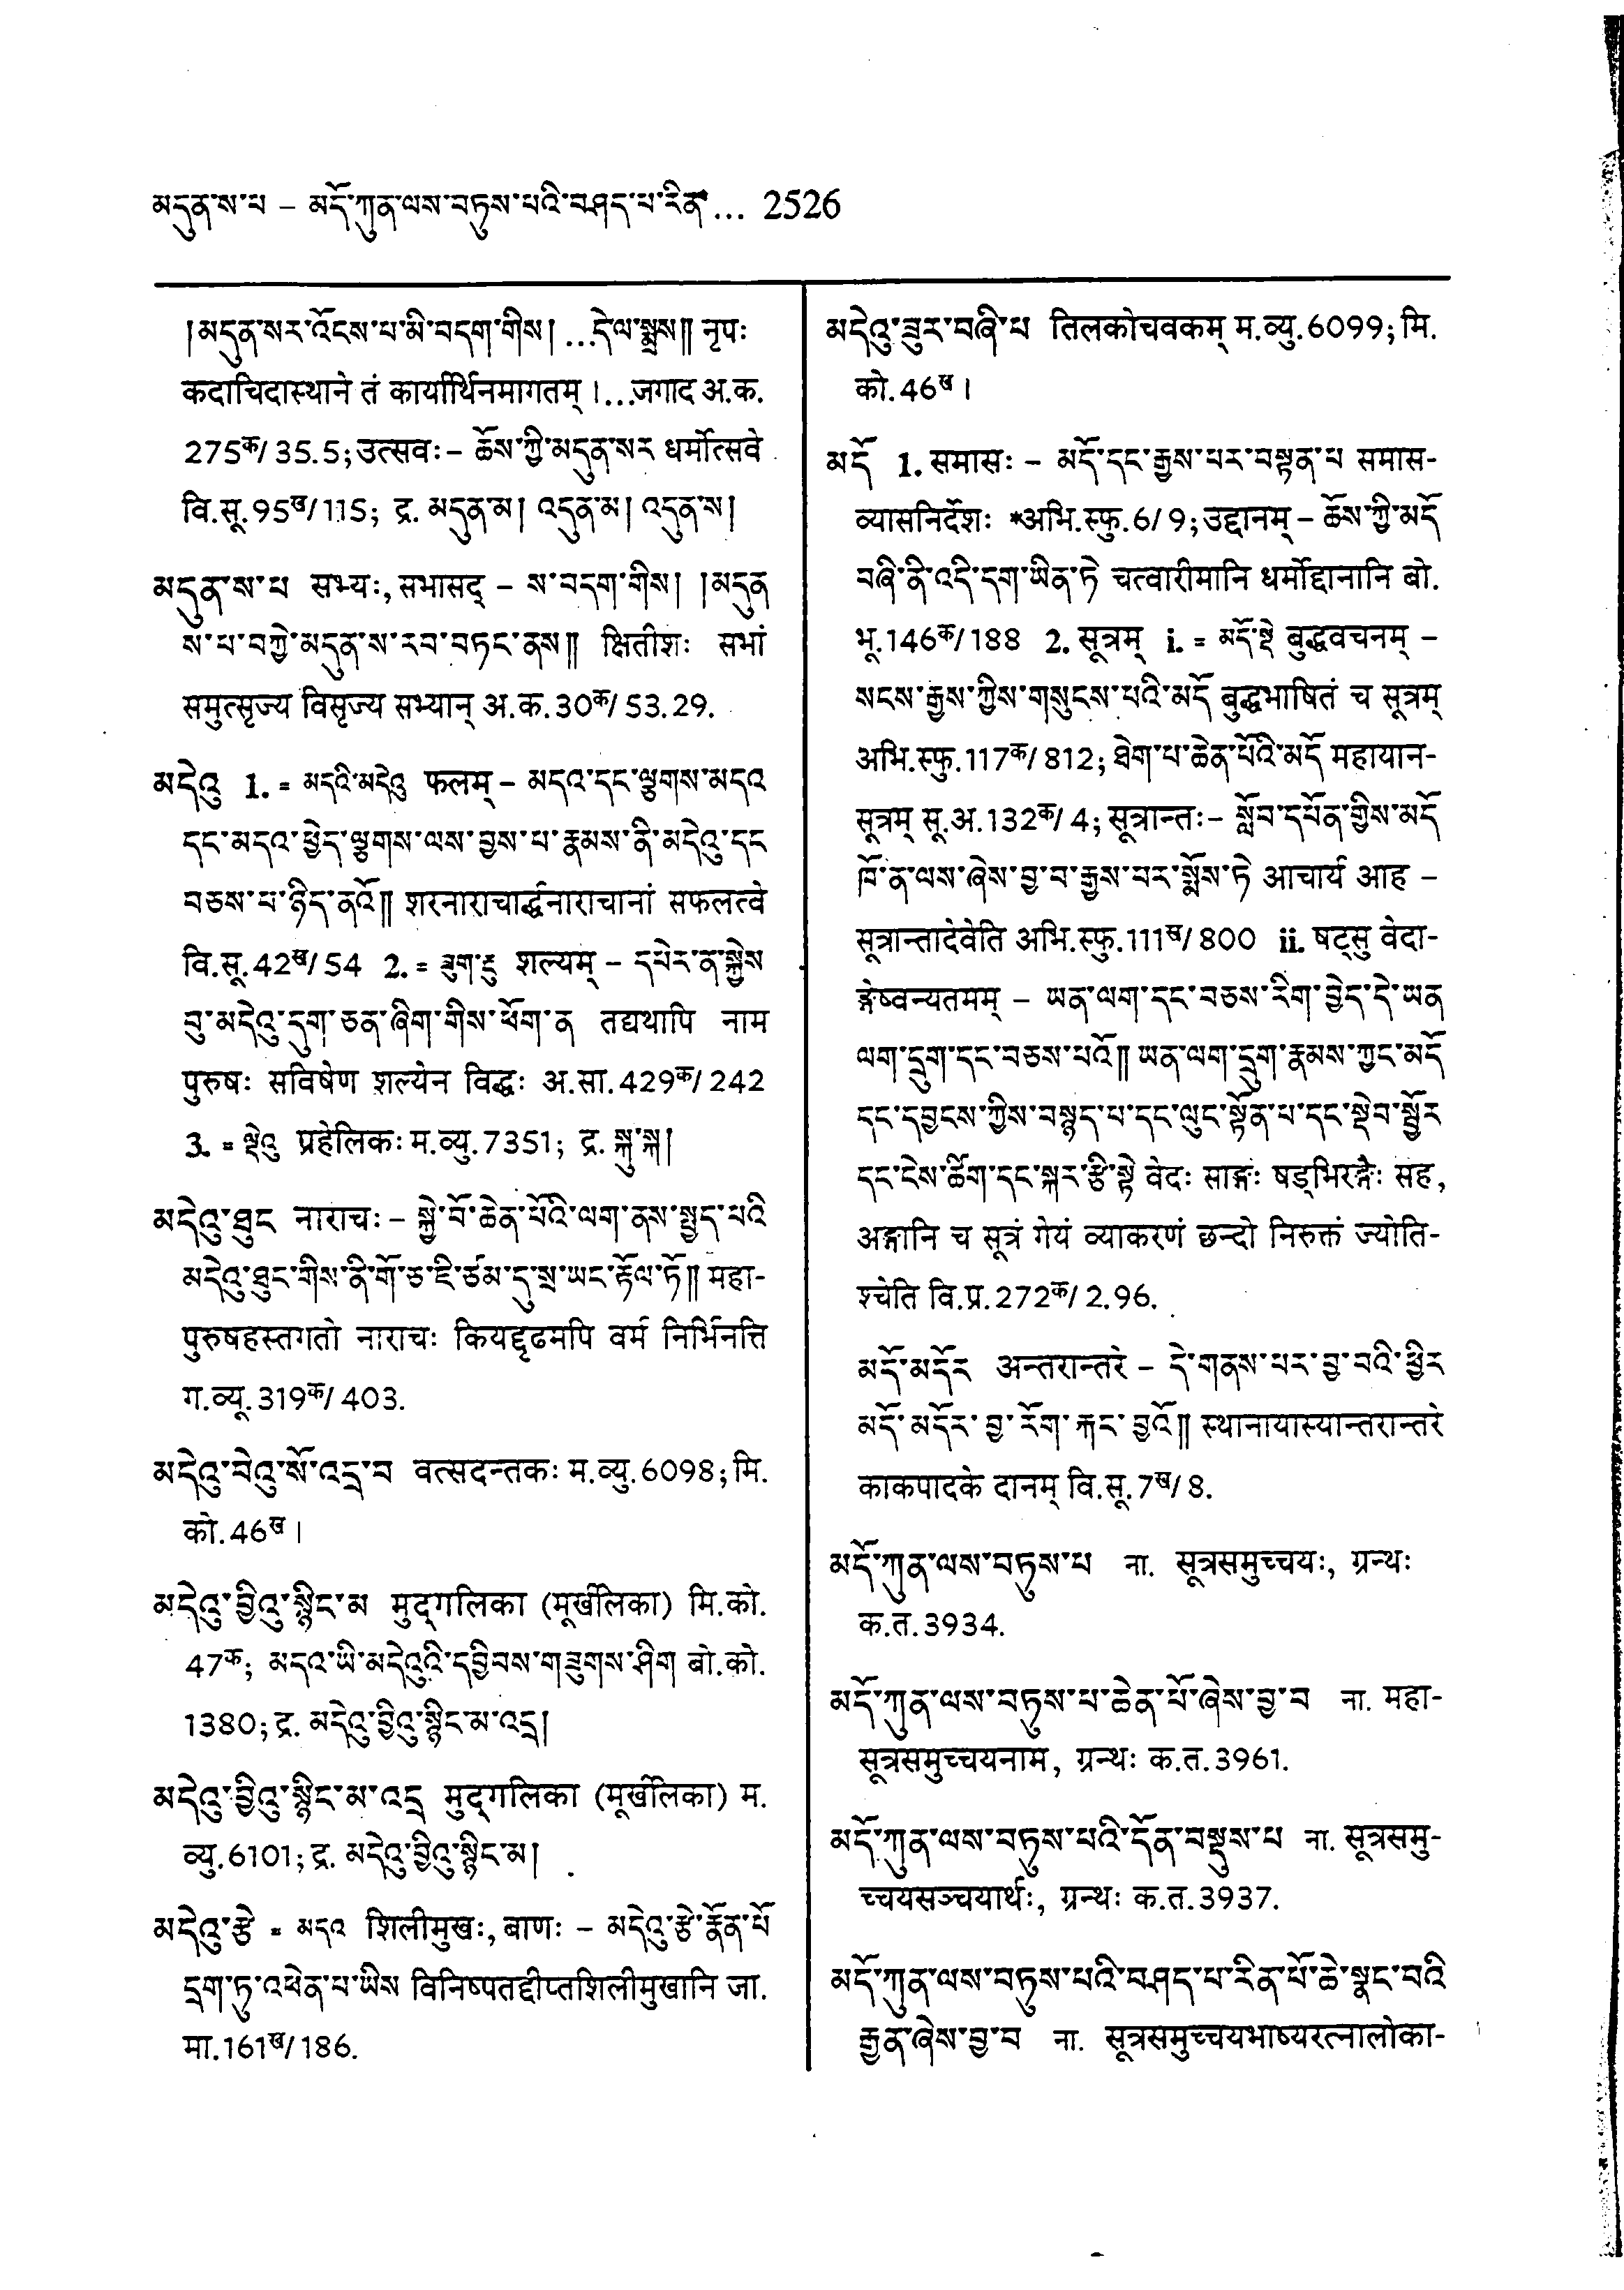 མདུན་ས་པ – མདོ་ཀུན་ལས་བཏུས་པའི་བཤད་པ་རིན་... 2526
།མདུན་སར་འོངས་པ་མི་བདག་གིས། ...དེལ་སྨྲས༎ नृपः
कदाचिदास्थाने तं कार्यार्थिनमागतम् ।...जगाद अ.क.
275क/35.5; उत्सवः – ཆོས་ཀྱི་མདུན་སར धर्मोत्सवे
वि.सू.95ख/115; द्र. མདུན་མ། འདུན་མ། འདུན་ས།
མདུན་ས་པ सभ्यः, सभासद् – ས་བདག་གིས། །མདུན
ས་པ་བཀྱེ་མདུན་ས་རབ་བཏང་ནས༎ क्षितीशः सभां
समुत्सृज्य विसृज्य सभ्यान् अ.क.30क/53.29.
མདེའུ 1. = མདའི་མདེའུ फलम् – མདའ་དང་ལྕགས་མདའ
དང་མདའ་ཕྱེད་ལྕགས་ལས་བྱས་པ་རྣམས་ནི་མདེའུ་དང
བཅས་པ་ཉིད་ནའོ༎ शरनाराचार्द्धनाराचानां सफलत्वे
वि.सू.42ख/54 2. = ཟུག་རྔུ शल्यम् – དཔེར་ན་སྐྱེས
བུ་མདེའུ་དུག་ཅན་ཞིག་གིས་ཕོག་ན तद्यथापि नाम
पुरुषः सविषेण शल्येन विद्धः अ.सा.429क/242
3. = ལྡེའུ प्रहेलिकः म.व्यु.7351; द्र. སྐུ་སྐ།
མདེའུ་ཐུང नाराचः – སྐྱེ་བོ་ཆེན་པོའི་ལག་ནས་སྤྱད་པའི
མདེའུ་ཐུང་གིས་ནི་གོ་ཅ་ཇི་ཙམ་དུ་སྲ་ཡང་རྟོལ་ཏོ༎ महा-
पुरुषहस्तगतो नाराचः कियद्दृढमपि वर्म निर्भिनत्ति
ग.व्यू.319क/403.
མདེའུ་བེའུ་སོ་འདྲ་བ वत्सदन्तकः म.व्यु.6098; मि.
को.46ख ।
མདེའུ་བྱིའུ་སྙིང་མ मुद्गलिका (मूर्खलिका) मि.को.
47क; མདའ་ཡི་མདེའུའི་དབྱིབས་གཟུགས་ཤིག बो.को.
1380; द्र. མདེའུ་བྱིའུ་སྙིང་མ་འདྲ།
མདེའུ་བྱིའུ་སྙིང་མ་འདྲ मुद्गलिका (मूर्खलिका) म.
व्यु.6101; द्र. མདེའུ་བྱིའུ་སྙིང་མ།
མདེའུ་རྩེ = མདའ शिलीमुखः, बाणः – མདེའུ་རྩེ་རྣོན་པོ
དྲག་ཏུ་འཕེན་པ་ཡིས विनिष्पतद्दीप्तशिलीमुखानि जा.
मा.161ख/186.
མདེའུ་ཟུར་བཞི་པ तिलकोचवकम् म.व्यु.6099; मि.
को.46ख ।
མདོ 1. समासः – མདོ་དང་རྒྱས་པར་བསྟན་པ समास-
व्यासनिर्देशः *अभि.स्फु.6/9; उद्दानम् – ཆོས་ཀྱི་མདོ
བཞི་ནི་འདི་དག་ཡིན་ཏེ चत्वारीमानि धर्मोद्दानानि बो.
भू.146क/188 2. सूत्रम् i. = མདོ་སྡེ बुद्धवचनम् –
སངས་རྒྱས་ཀྱིས་གསུངས་པའི་མདོ बुद्धभाषितं च सूत्रम्
अभि.स्फु.117क/812; ཐེག་པ་ཆེན་པོའི་མདོ महायान-
सूत्रम् सू.अ.132क/4; सूत्रान्तः – སློབ་དཔོན་གྱིས་མདོ
ཁོ་ན་ལས་ཞེས་བྱ་བ་རྒྱས་པར་སྨོས་ཏེ आचार्य आह –
सूत्रान्तादेवेति अभि.स्फु.111ख/800 ii. षट्सु वेदा-
ङ्गेष्वन्यतमम् – ཡན་ལག་དང་བཅས་རིག་བྱེད་དེ་ཡན
ལག་དྲུག་དང་བཅས་པའོ༎ ཡན་ལག་དྲུག་རྣམས་ཀྱང་མདོ
དང་དབྱངས་ཀྱིས་བསྙད་པ་དང་ལུང་སྟོན་པ་དང་སྡེབ་སྦྱོར
དང་ངེས་ཚིག་དང་སྐར་རྩི་སྟེ वेदः साङ्गः षड्भिरङ्गैः सह,
अङ्गानि च सूत्रं गेयं व्याकरणं छन्दो निरुक्तं ज्योति-
श्चेति वि.प्र.272क/2.96.
མདོ་མདོར अन्तरान्तरे – དེ་གནས་པར་བྱ་བའི་ཕྱིར
མདོ་མདོར་བྱ་རོག་རྐང་བྱའོ༎ स्थानायास्यान्तरान्तरे
काकपादके दानम् वि.सू.7ख/8.
མདོ་ཀུན་ལས་བཏུས་པ ना. सूत्रसमुच्चयः, ग्रन्थः
क.त.3934.
མདོ་ཀུན་ལས་བཏུས་པ་ཆེན་པོ་ཞེས་བྱ་བ ना. महा-
सूत्रसमुच्चयनाम, ग्रन्थः क.त.3961.
མདོ་ཀུན་ལས་བཏུས་པའི་དོན་བསྡུས་པ ना. सूत्रसमु-
च्चयसञ्चयार्थः, ग्रन्थः क.त.3937.
མདོ་ཀུན་ལས་བཏུས་པའི་བཤད་པ་རིན་པོ་ཆེ་སྣང་བའི
རྒྱན་ཞེས་བྱ་བ ना. सूत्रसमुच्चयभाष्यरत्नालोका-